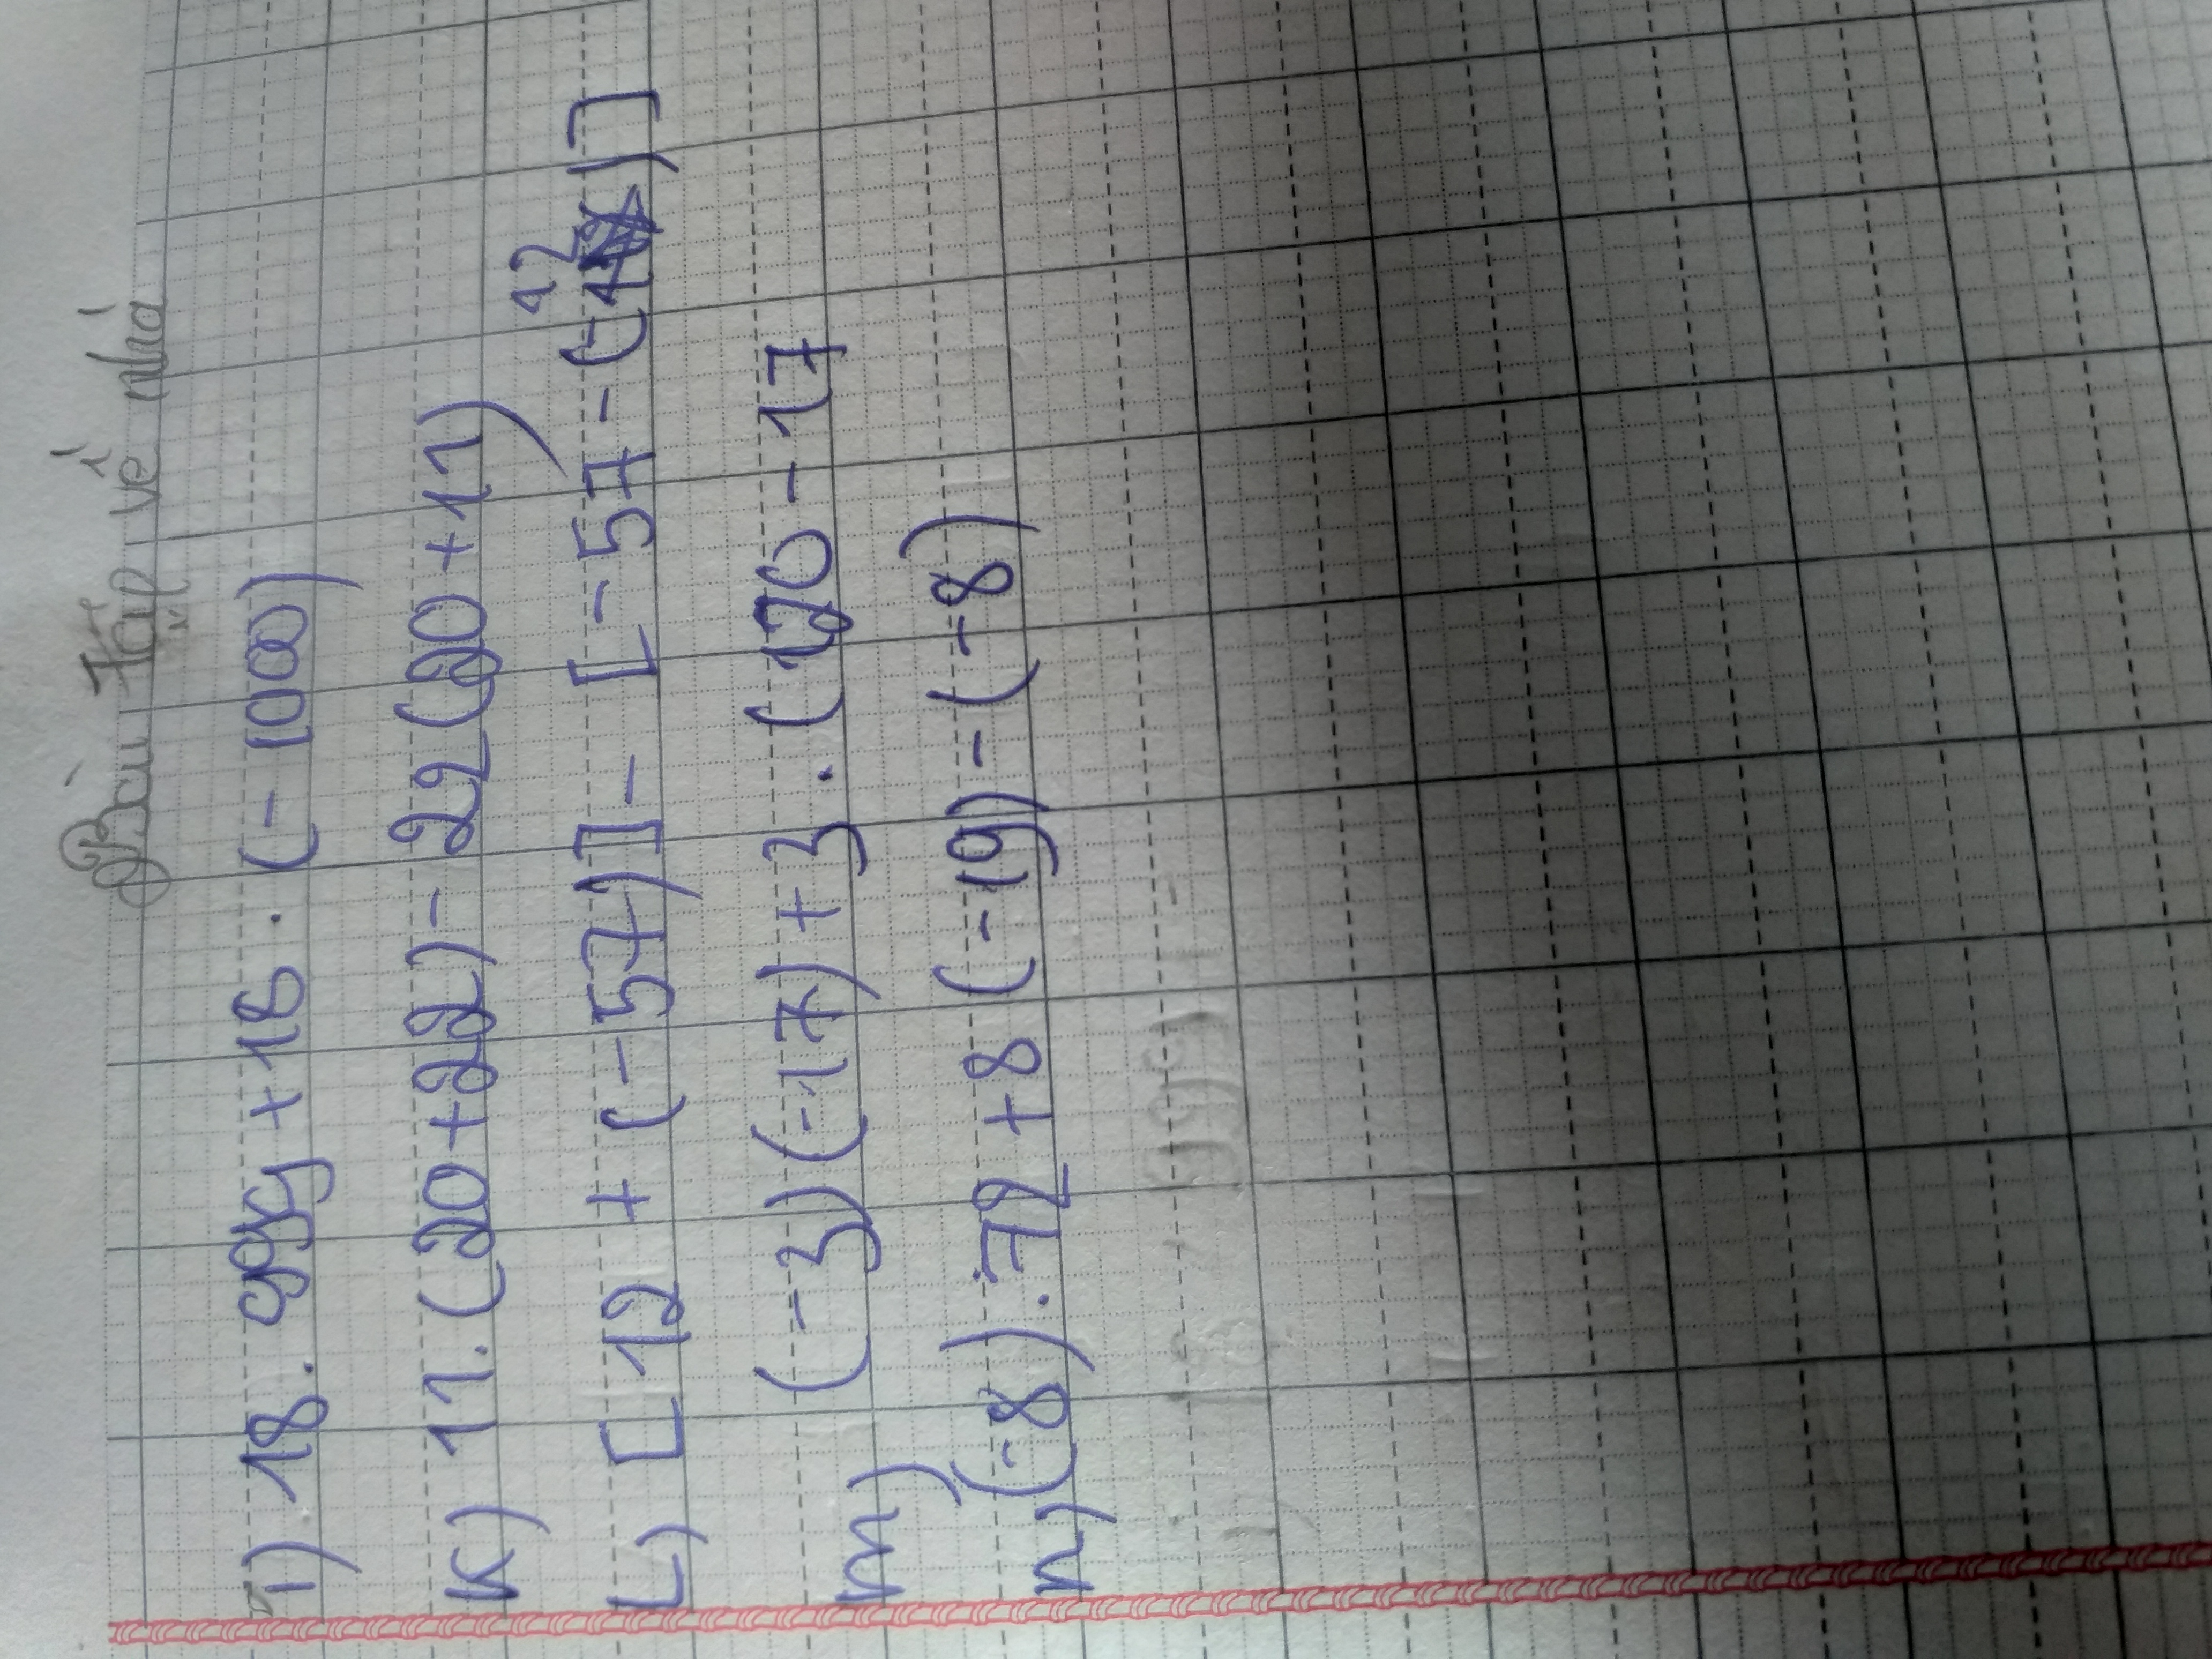 Bài Tập về nhà
i) 18. 999 + 18. (-1000)
k) 11. (20+22) - 22(20+11)
L) [12 + (-57)] - [-57-(-12)]
m) (-3)(-17)+3.(120-17
n) (-8).72+8 (-19)-(-8)